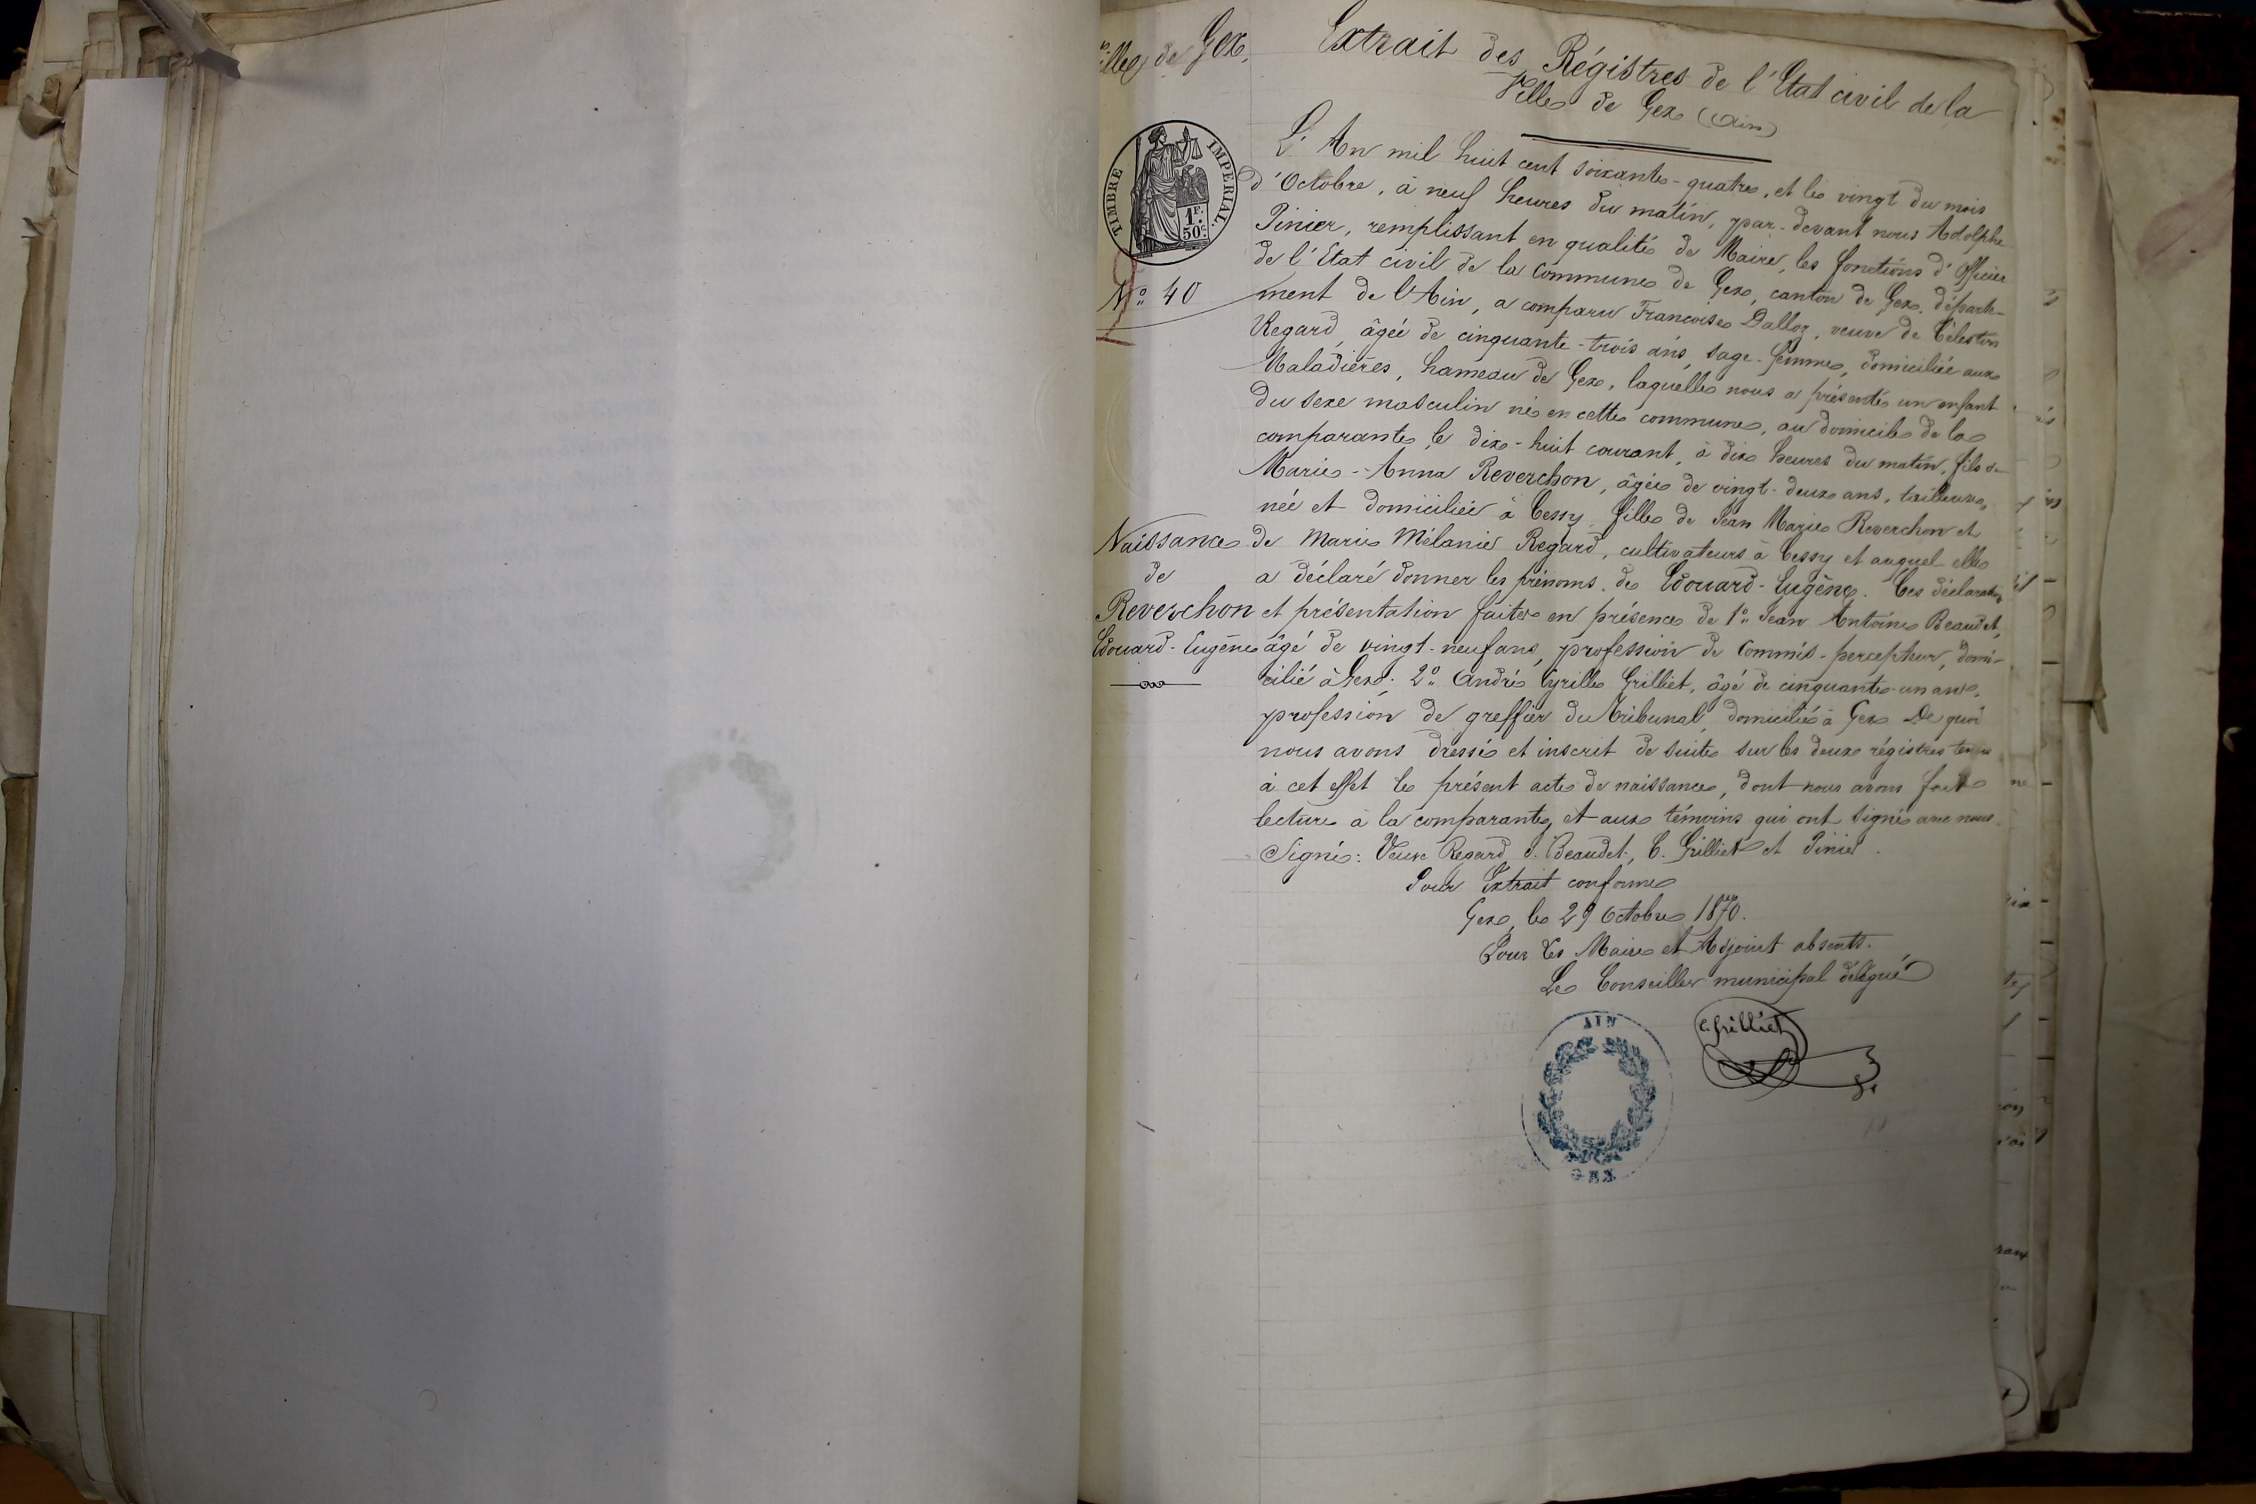 Ville de Gex.
Extrait des Régistres de l'Etat civil de la
Ville de Gex (Ain)
TIMBRE IMPERIAL.
1F.
50c.
No. 40
L'An mil huit cent soixante-quatre, et le vingt du mois
d'Octobre, à neuf heures du matin, par-devant nous Adolphe
Pinier, remplissant en qualité de Maire, les fonctions d'Officier
de l'Etat civil de la Commune de Gex, canton de Gex, départe-
ment de l'Ain, a comparu Françoise Dalloz, veuve de Célestin
Regard, âgée de cinquante-trois ans, sage-femme, domiciliée aux
Maladières, hameau de Gex, laquelle nous a présenté un enfant
du sexe masculin né en cette commune, au domicile de la
comparante, le dix-huit courant, à dix heures du matin, fils de
Marie-Anna Reverchon, âgée de vingt-deux ans, tailleuse,
née et domiciliée à Cessy, fille de Jean Marie Reverchon et
de Marie Mélanie Regard, cultivateurs à Cessy et auquel elle
a déclaré donner les prénoms de Edouard-Eugène. Ces déclaration
et présentation faites en présence de 1o. Jean Antoine Beaudet,
âgé de vingt-neuf ans, profession de Commis-percepteur, domi-
cilié à Gex; 2o. André Cyrille Grilliet, âgé de cinquante-un ans,
profession de greffier du tribunal, domicilié à Gex. De quoi
nous avons dressé et inscrit de suite sur les deux régistres tenus
à cet effet le présent acte de naissance, dont nous avons fait
lecture à la comparante, et aux témoins qui ont signé avec nous.
Signé: Veuve Regard, J. Beaudet, C. Grilliet et Pinier.
Naissance
de
Reverchon
Edouard-Eugène
Pour Extrait conforme
Gex, le 29 Octobre 1870.
Pour les Maire et Adjoint absents.
Le Conseiller municipal délégué
C. Grilliet
AIN
GEX